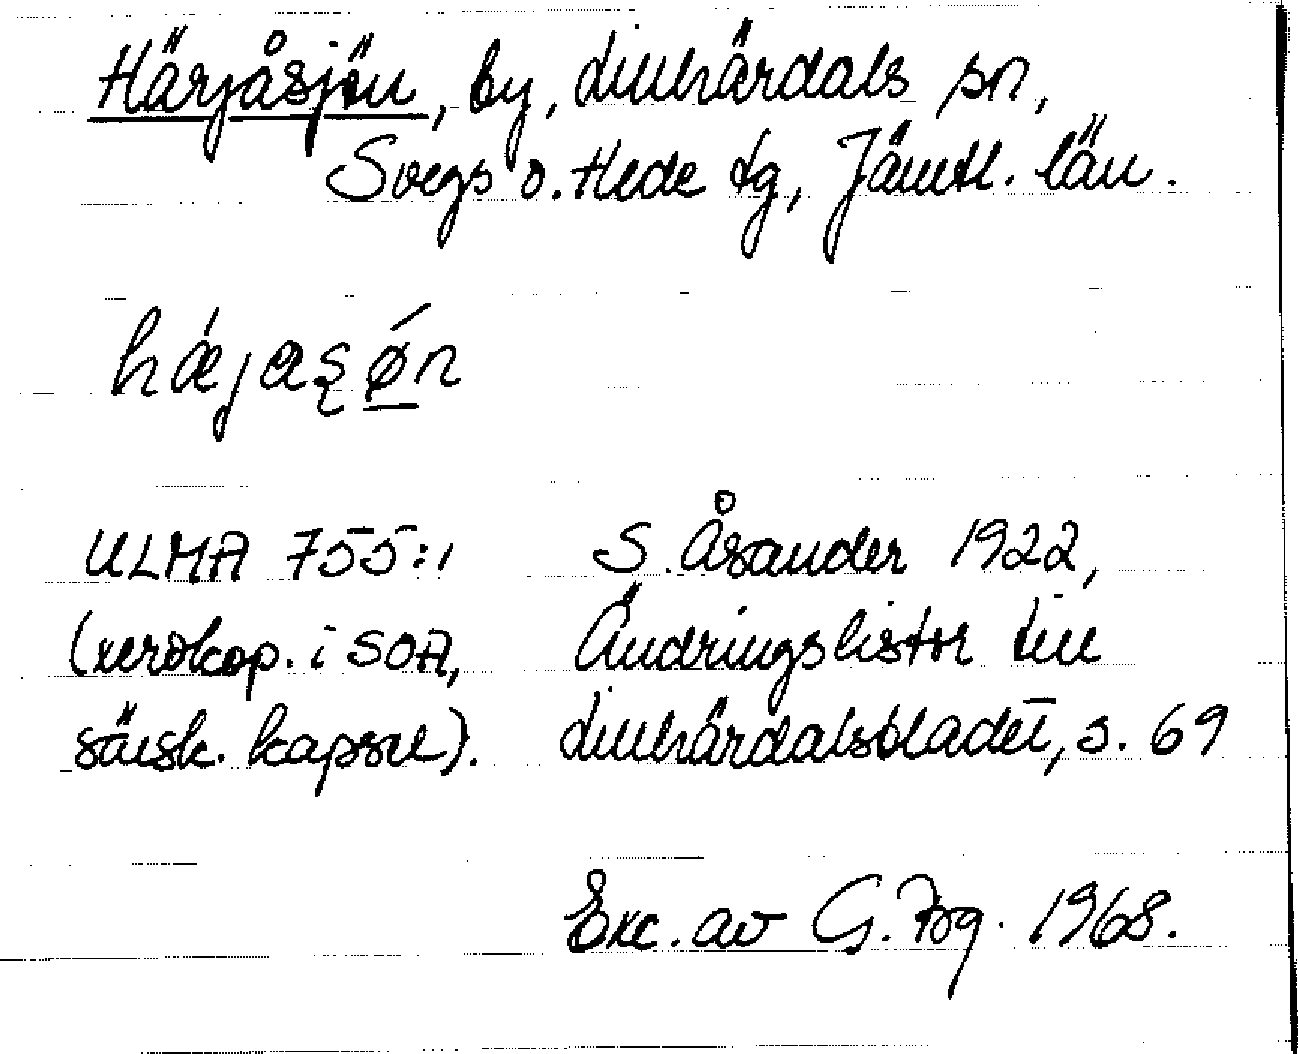 Härjåsjön, by, Lillhärdals sn,
Svegs o. Hede tg, Jämtl. län.
hǽjasǿn
ULMA 755:1
(xerokop. i SOA,
särsk. kapsel).
S. Åsander 1922,
Ändringslistor till
Lillhärdalsbladet, s. 69
Exc. av G. Fbg. 1968.